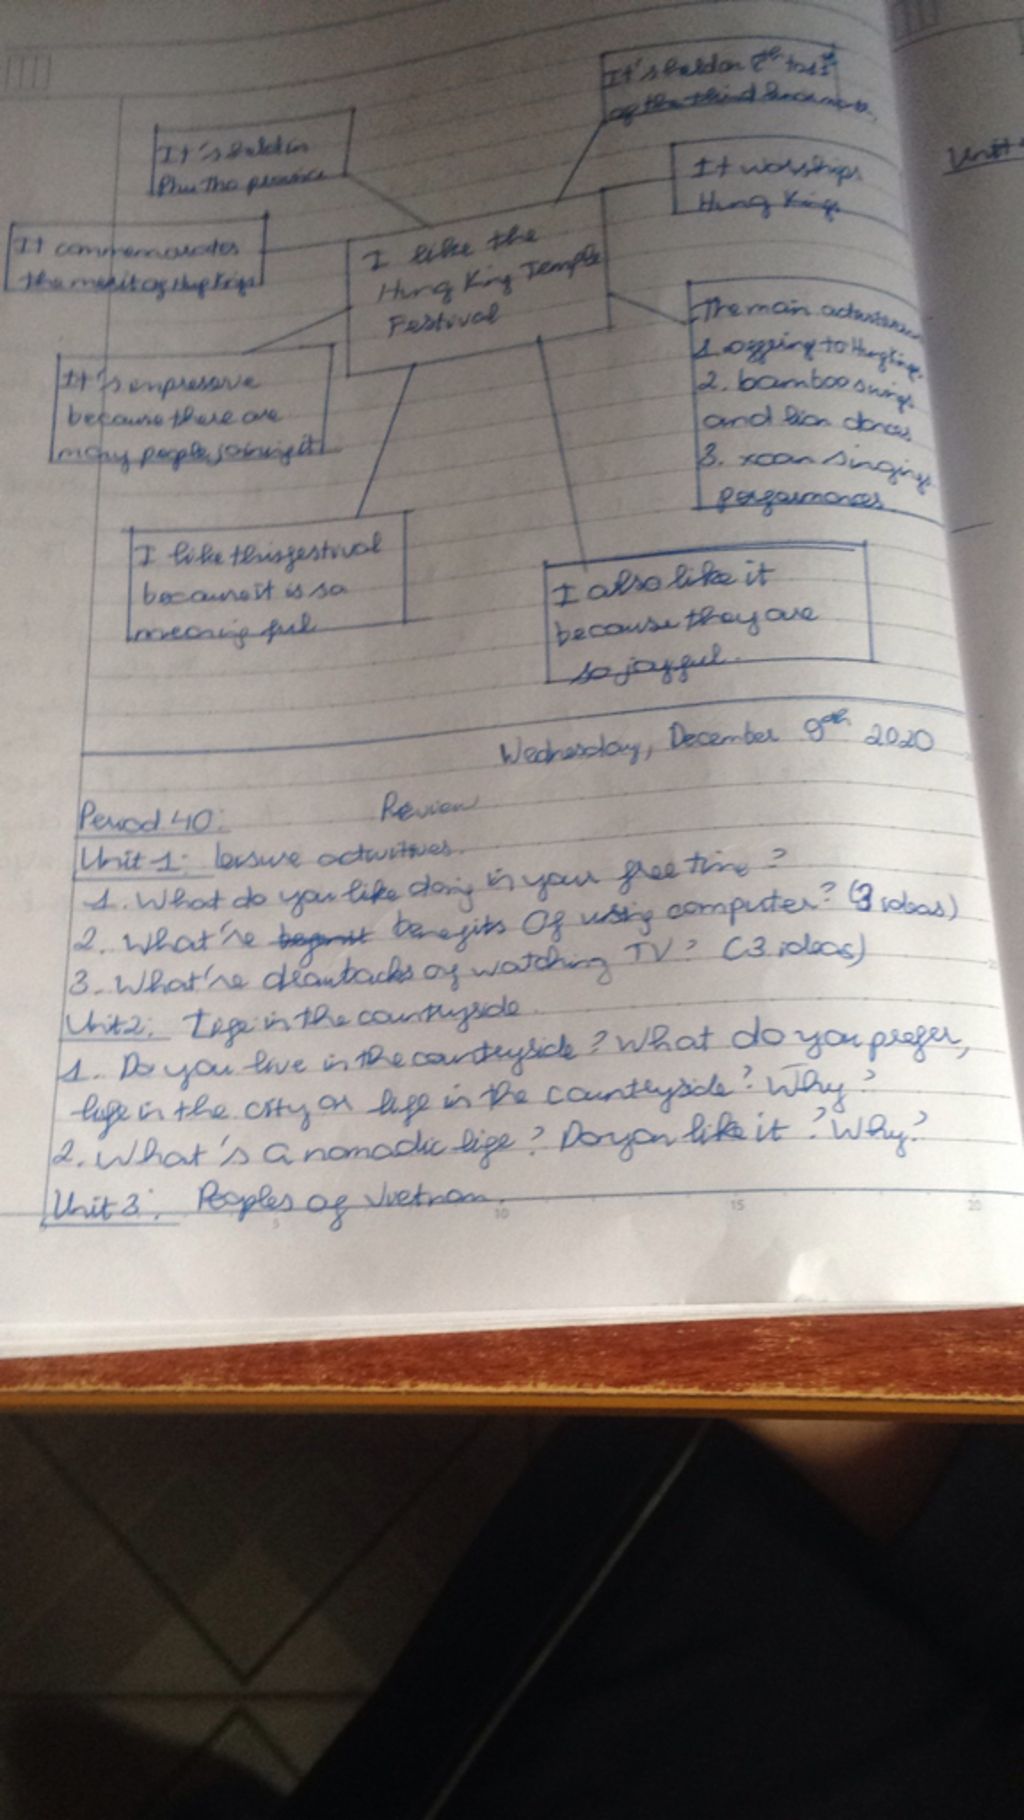 It's held on 8th to 11th
of the third lunar month.
It's held in
Phu Tho province
It worships
Hung Kings
It commemorates
the merit of Hung Kings
I like the
Hung King Temple
Festival
The main activities
1. offering to Hung Kings
2. bamboo swings
and lion dances
3. xoan singing
performances
It's impressive
because there are
many people joining it
I like this festival
because it is so
meaningful
I also like it
because they are
so joyful.
Wednesday, December 9th 2020
Period 40: Review
Unit 1: leisure activities.
1. What do you like doing in your free time?
2. What're benefits Of using computer? (3 ideas)
3. What're drawbacks of watching TV? (3 ideas)
Unit 2: Life in the countryside.
1. Do you live in the countryside? What do you prefer,
life in the city or life in the countryside? Why?
2. What's a nomadic life? Do you like it? Why?
Unit 3: Peoples of Vietnam.
5 10 15 20
Unit